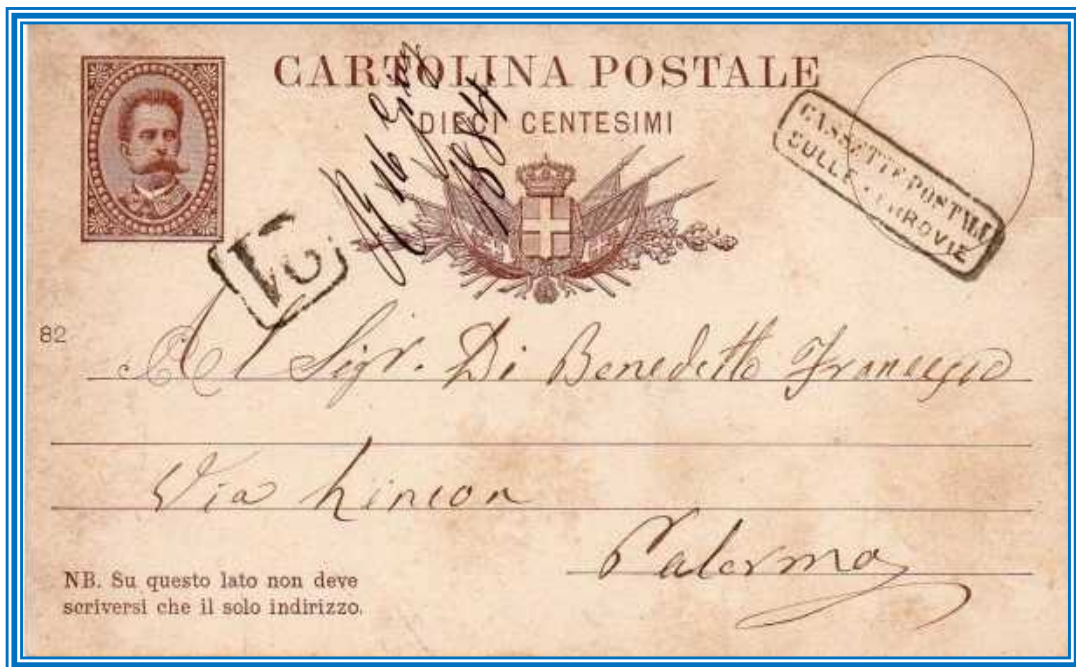 CARTOLINA POSTALE
DIECI CENTESIMI
16 Giug
1884
CASSETTE POSTALI
SULLE FERROVIE
21
82
Al Sigr. Di Benedetto Francesco
Via Lincon
Palermo
NB. Su questo lato non deve
scriversi che il solo indirizzo.